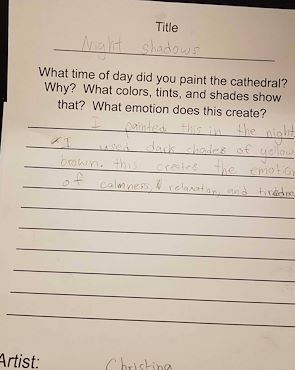 Title
Night shadows
What time of day did you paint the cathedral?
Why? What colors, tints, and shades show
that? What emotion does this create?
I painted this in the night
I used dark shades of yellow
brown. this creates the emotion
of calmness, relaxation, and tiredne
Artist:
Christina